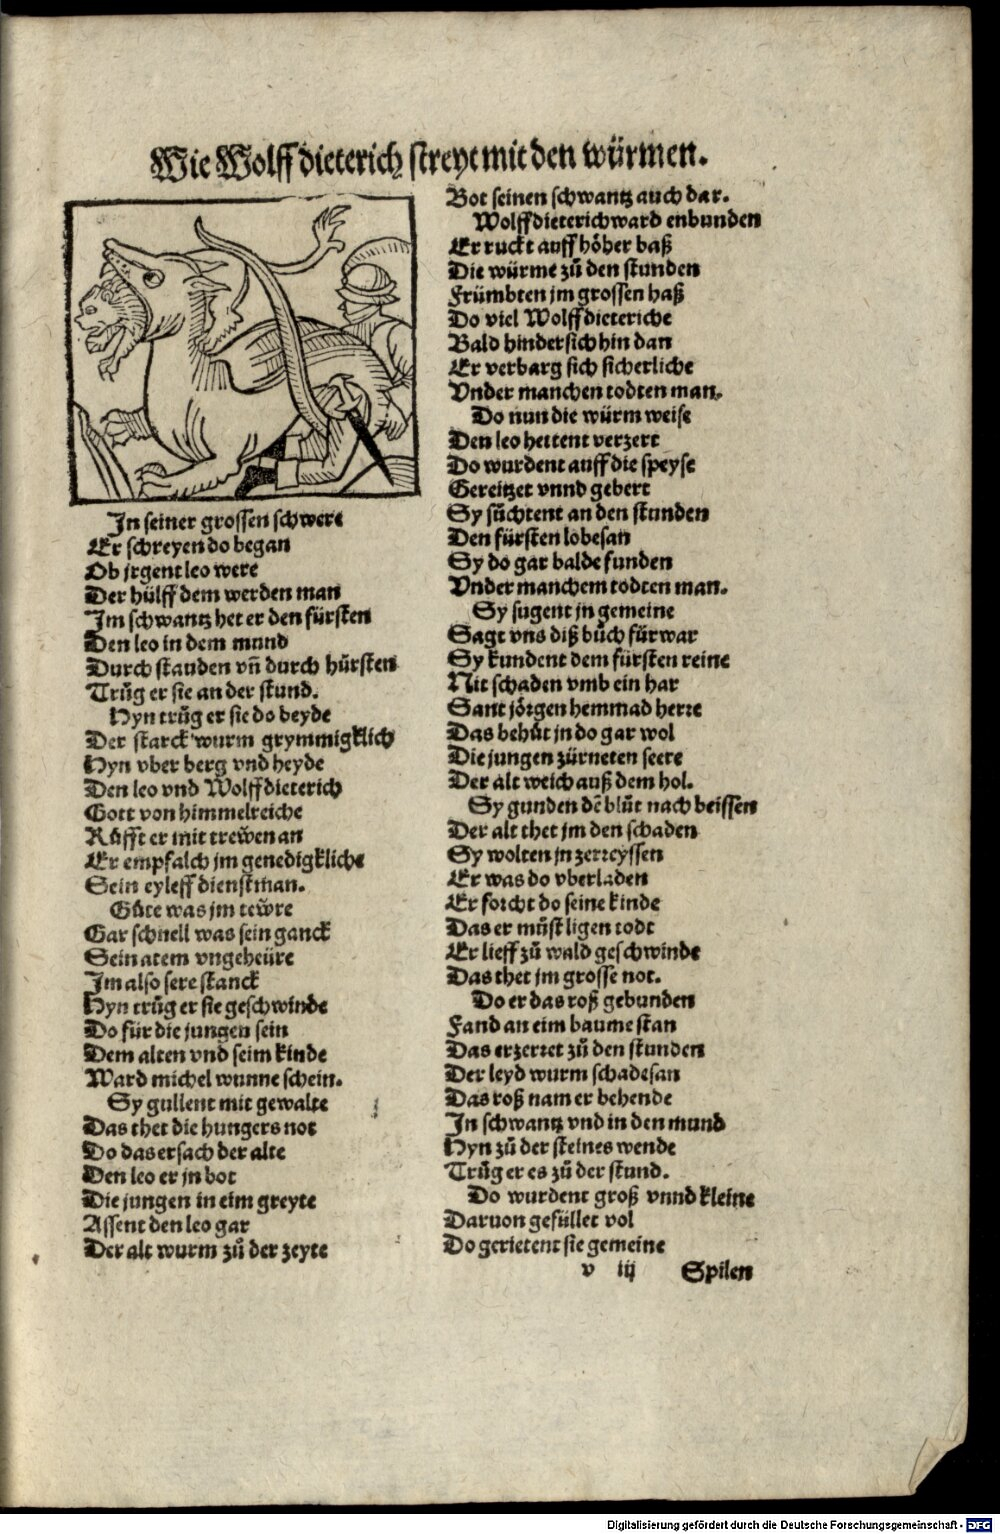 Wie Wolff dieterich streyt mit den würmen.
In seiner grossen schwere
Er schreyen do began
Ob jrgent leo were
Der hülff dem werden man
Im schwantz het er den fürsten
Den leo in dem mund
Durch stauden vñ durch hürsten
Trůg er sie an der stund.
Hyn trůg er sie do beyde
Der starck wurm grymmigklich
Hyn vber berg vnd heyde
Den leo vnd Wolff dieterich
Gott von himmelreiche
Růfft er mit trewen an
Er empfalch jm genedigkliche
Sein eyleff dienstman.
Gůte was jm tewre
Gar schnell was sein ganck
Sein atem vngeheüre
Im also sere stanck
Hyn trůg er sie geschwinde
Do für die jungen sein
Dem alten vnd seim kinde
Ward michel wunne schein.
Sy gullent mit gewalte
Das thet die hungers not
Do das ersach der alte
Den leo er jn bot
Die jungen in eim greyte
Assent den leo gar
Der alt wurm zů der zeyte
Bot seinen schwantz auch dar.
Wolff dieterich ward enbunden
Er ruckt auff höher baß
Die würme zů den stunden
Frümbten jm grossen haß
Do viel Wolff dieteriche
Bald hinder sich hin dan
Er verbarg sich sicherliche
Vnder manchen todten man.
Do nun die würm weise
Den leo hettent verzert
Do wurdent auff die speyse
Gereitzet vnnd gebert
Sy sůchtent an den stunden
Den fürsten lobesan
Sy do gar balde funden
Vnder manchem todten man.
Sy sugent jn gemeine
Sagt vns diß bůch fürwar
Sy kundent dem fürsten reine
Nit schaden vmb ein har
Sant jörgen hemmad herre
Das behůt jn do gar wol
Die jungen zürneten seere
Der alt weich auß dem hol.
Sy gunden dē blůt nach beissen
Der alt thet jm den schaden
Sy wolten jn zerreyssen
Er was do vberladen
Er forcht do seine kinde
Das er můst ligen todt
Er lieff zů wald geschwinde
Das thet jm grosse not.
Do er das roß gebunden
Fand an eim baume stan
Das erzerret zů den stunden
Der leyd wurm schadesan
Das roß nam er behende
In schwantz vnd in den mund
Hyn zů der steines wende
Trůg er es zů der stund.
Do wurdent groß vnnd kleine
Daruon gefüllet vol
Do gerietent sie gemeine
v iij Spilen
Digitalisierung gefördert durch die Deutsche Forschungsgemeinschaft - DFG